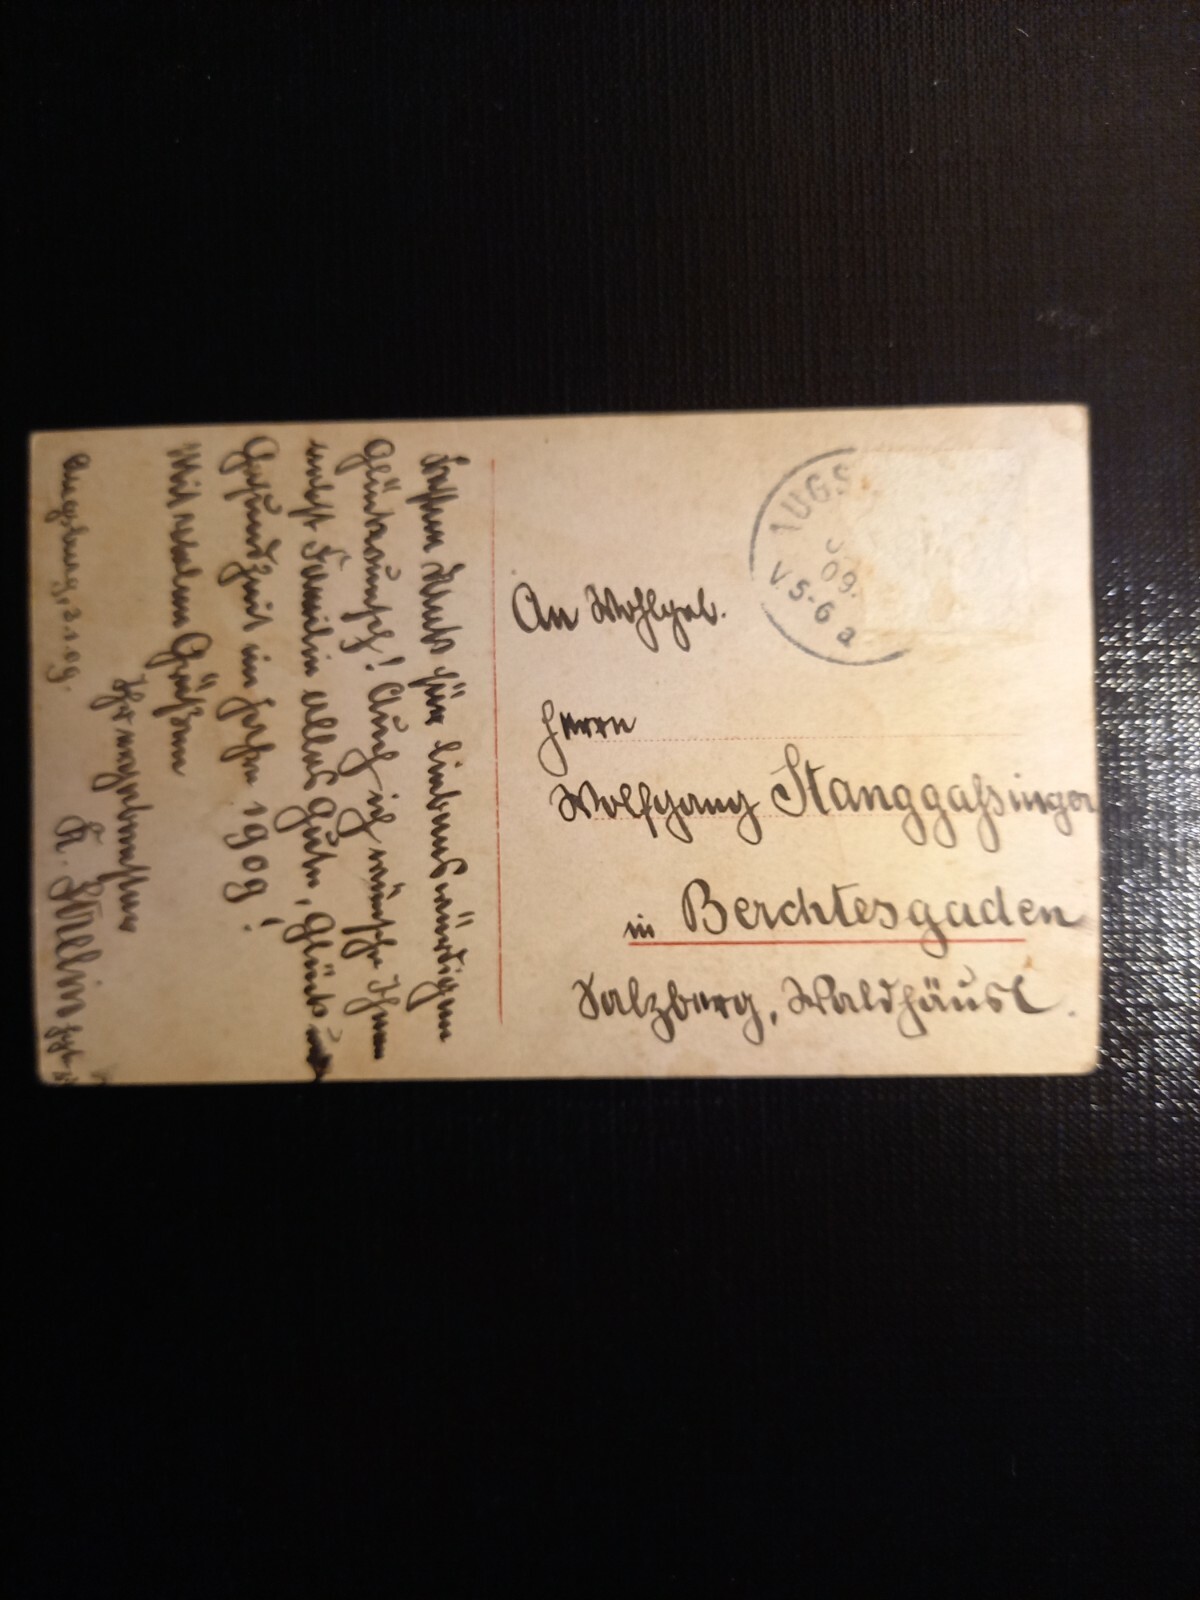 Besten Dank für liebenswürdigen
Glückwunsch! Auch ich wünsche Ihnen
nebst Familie alles Gute, Glück u.
Gesundheit im Jahre 1909!
Mit vielen Grüßen
Ihr ergebenster
Augsburg, 3.1.09.
AUGS
09.
V. 5-6 a
An Wohlgeb.
Herrn
Wolfgang Stanggaßinger
in Berchtesgaden
Salzberg, Waldhäusl.